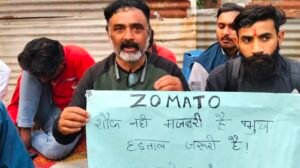 ZOMATO
शौक नही मजबूरी है भूख
हड़ताल जरूरी है!